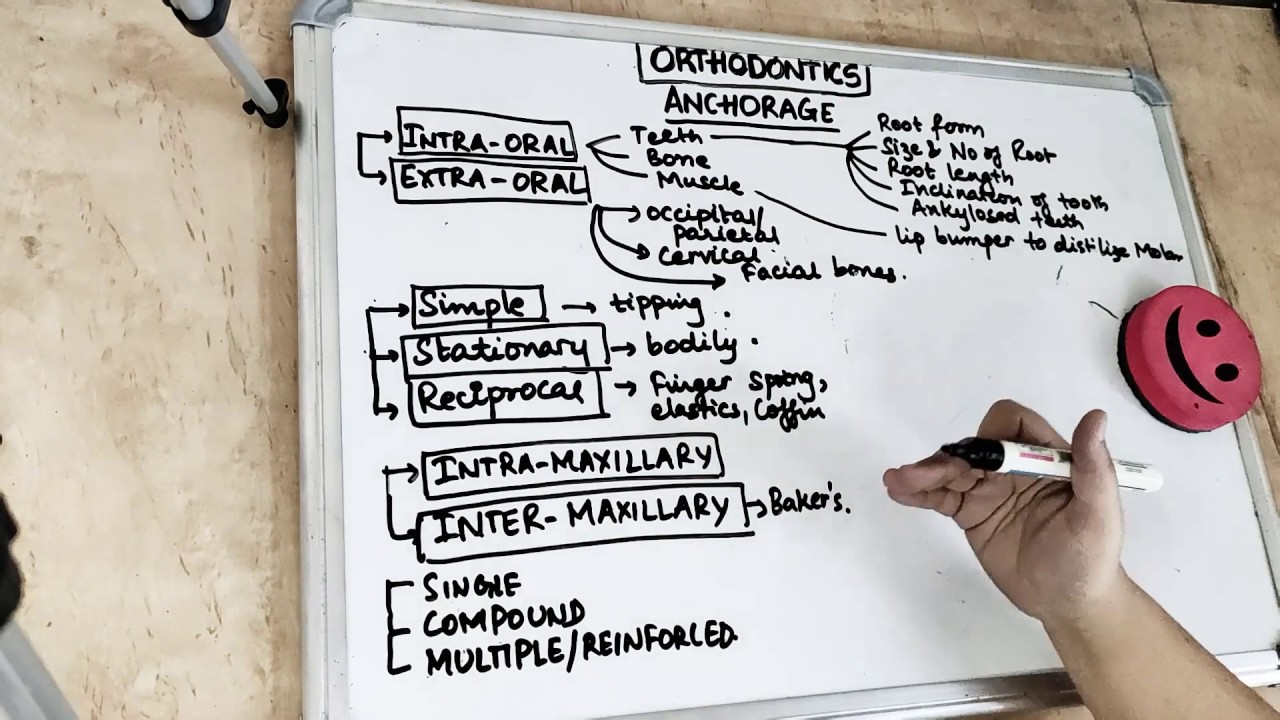 ORTHODONTICS
ANCHORAGE
INTRA-ORAL
EXTRA-ORAL
Teeth
Bone
Muscle
Root form
Size & No of Root
Root length
Inclination of tooth
Ankylosed teeth
lip bumper to distilize Molar
occipital/
parietal
Cervical.
Facial bones.
Simple → tipping.
Stationary → bodily.
Reciprocal → Finger Spring,
elastics, Coffin
INTRA-MAXILLARY
INTER-MAXILLARY → Baker's.
SINGLE
COMPOUND
MULTIPLE/REINFORCED.